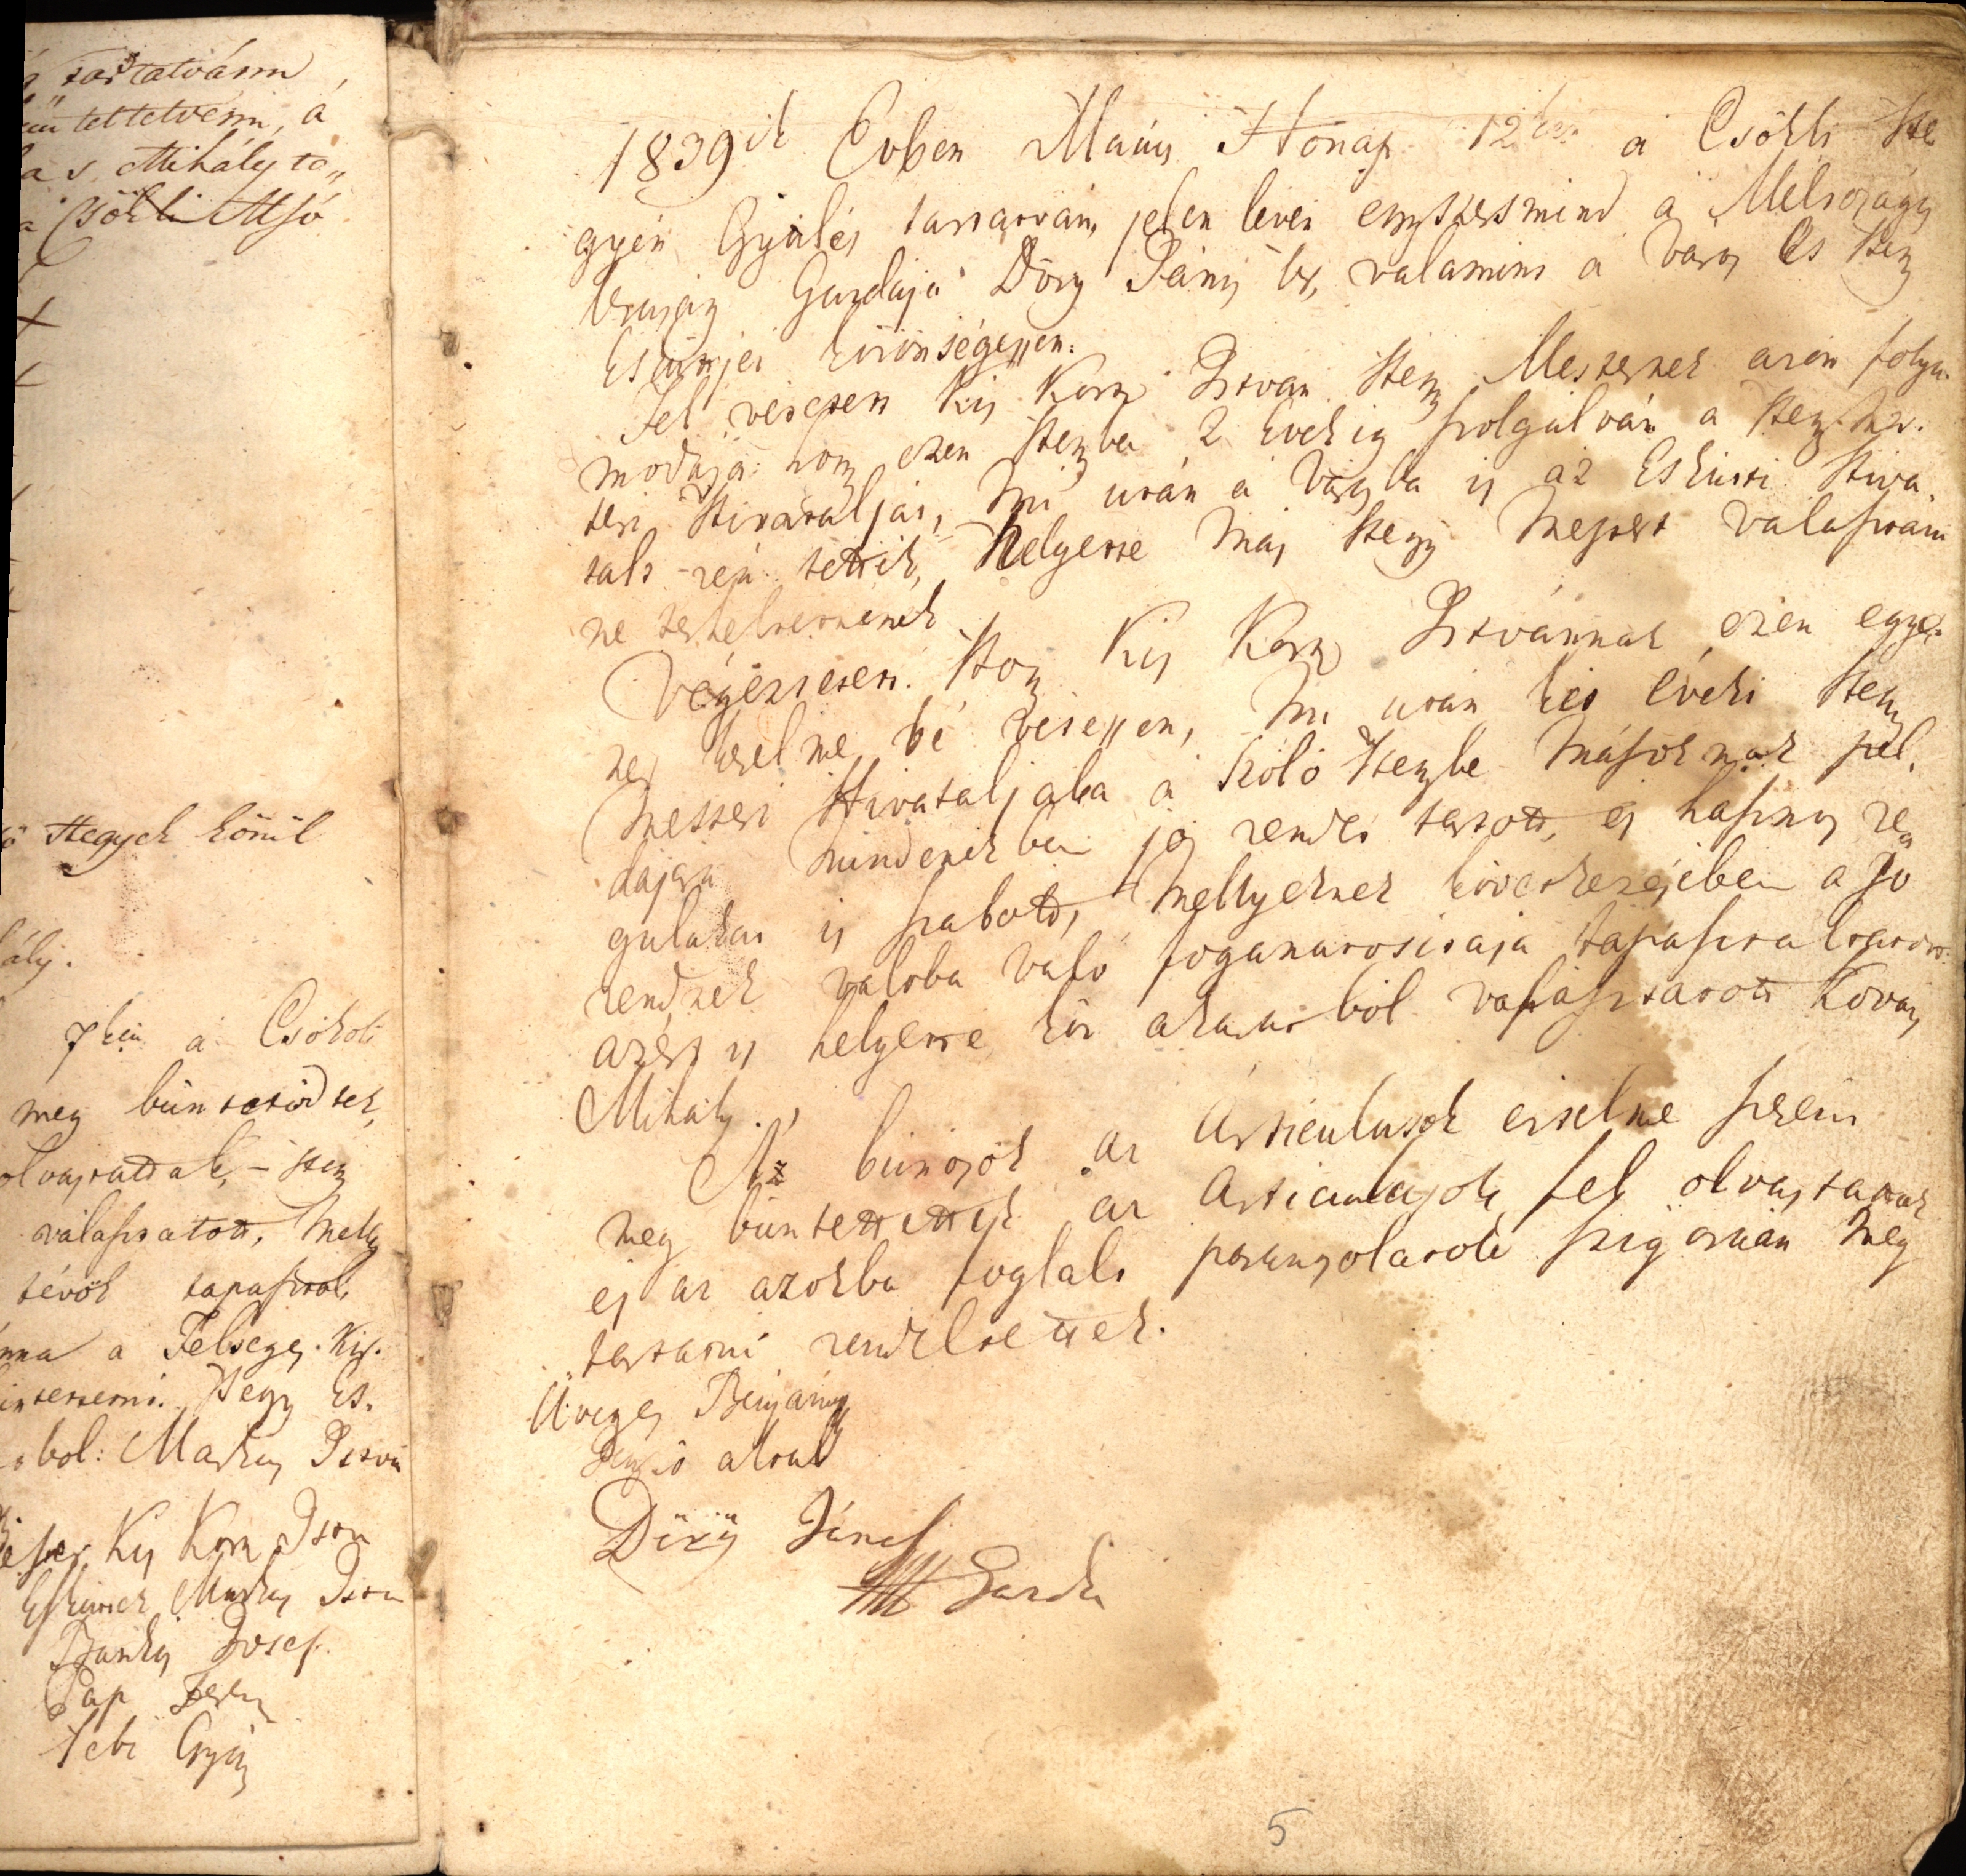 tartatván
büntettetvén, á
Mihály ta„
Csökli Alsó
Hegyek közül
ály.
7kén a Csökoli
meg büntetődtek,
olvastattak, – Hegy
választatott, Melly
tévők tapasztal,
a Felséges Kir.
Hegy Es.
ból: Markus Istvá
Kis Korn Istvn
Eskűttek Markus Istvn
Banki Josef
Pap Feren
Sebe György
1839ik Évben Május Hónap 12kén a Csökli He
gyen Gyülés tartatván, jelen lévén egyszersmind a Méltóságos
Uraság Gazdája Döry János Ur, valamint a Város és Hegy
Esküttjei közönségessen.
Fel vétetett Kis Korn Istvan Hegy Mesternek azon folya„
modása: hogy ezen Hegybe 2 Evekig szolgálván a Hegy Mes.
teri Hivatalját, Mi után a Városba is az Eskütti Hiva„
talt reá tették, helyette más Hegy Mester választatni
ne terheltetnénék
Végeztetett. Hogy Kis Korn Istvánnak ezen egye„
nes kérelme bé vétessen, Mi után két éveki Hegy
Mesteri Hivataljába a Szőlő Hegybe Másoknak pél„
dájára Mindenekben jó rendet tartott, és hasznos re„
gulákat is szabott, Mellyeknek következésében a jó
rendnek valoba való foganatositása tapasztaltatott
azért is helyette köz akaratból választatott Kovats
Mihály.
Az bünösök az Articulusok értelme szerint
meg büntettettek az Articulusok fel olvastattak
és az azokba foglalt parantsolatok szigoruan meg
tartatni rendeltettek.
Üveges Benjámin
Döry János
Gazda
5